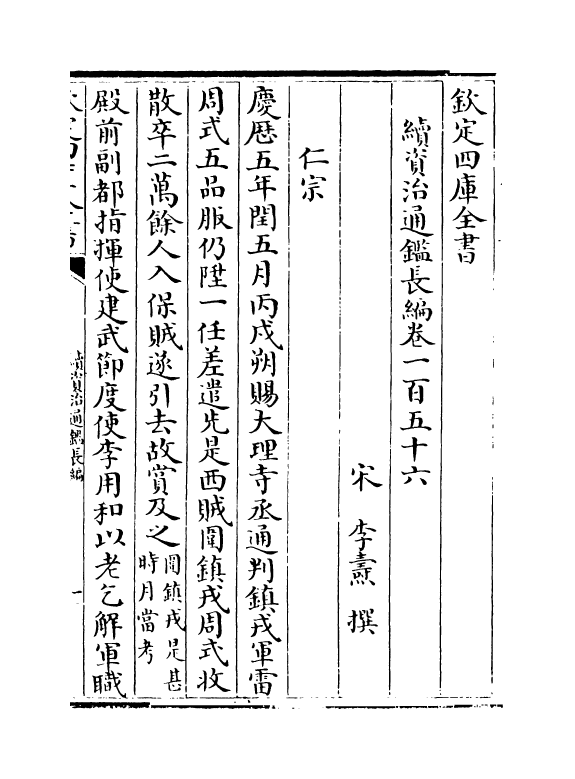 欽定四庫全書
續資治通鑑長編卷一百五十六
宋 李燾 撰
仁宗
慶厯五年閏五月丙戌朔賜大理寺丞通判鎮戎軍雷
周式五品服仍陞一任差遣先是西賊圍鎮戎周式收
散卒二萬餘人入保賊遂引去故賞及之圍鎮戎是甚時月當考
殿前副都指揮使建武節度使李用和以老乞解軍職
續資治通鑑長編
一